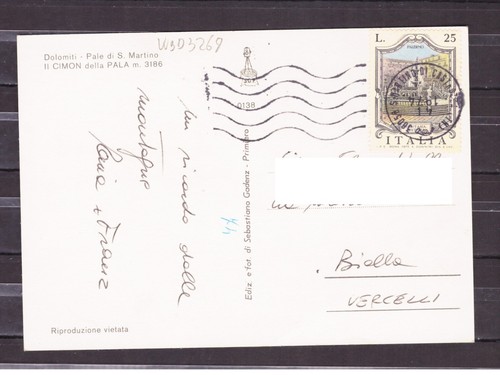 WB03269
Dolomiti - Pale di S. Martino
Il CIMON della PALA m. 3186
0138
Un ricordo dalle
montagne
Ediz. e fot. di Sebastiano Gadenz - Primiero
74
L. 25
PALERMO
ITALIA
38058
Biella
VERCELLI
Riproduzione vietata